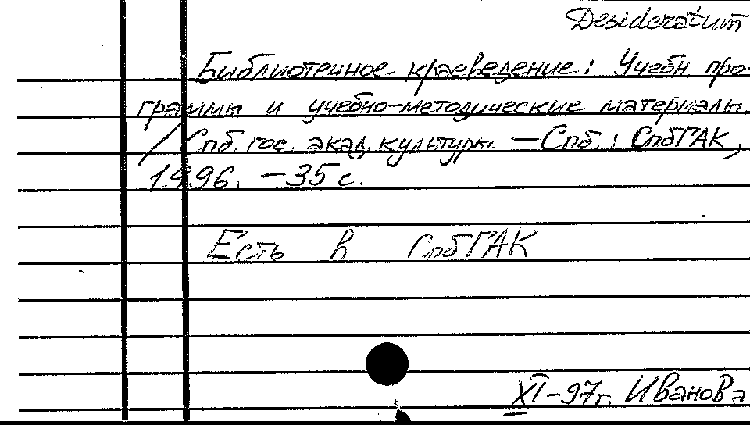 Desideratum
Библиотечное краеведение: Учебн про-
граммы и учебно-методические материалы
/ Спб. гос. акад. культуры. — Спб.: СпбГАК,
1996. — 35 с.
Есть в СпбГАК
XI-97г. Иванова